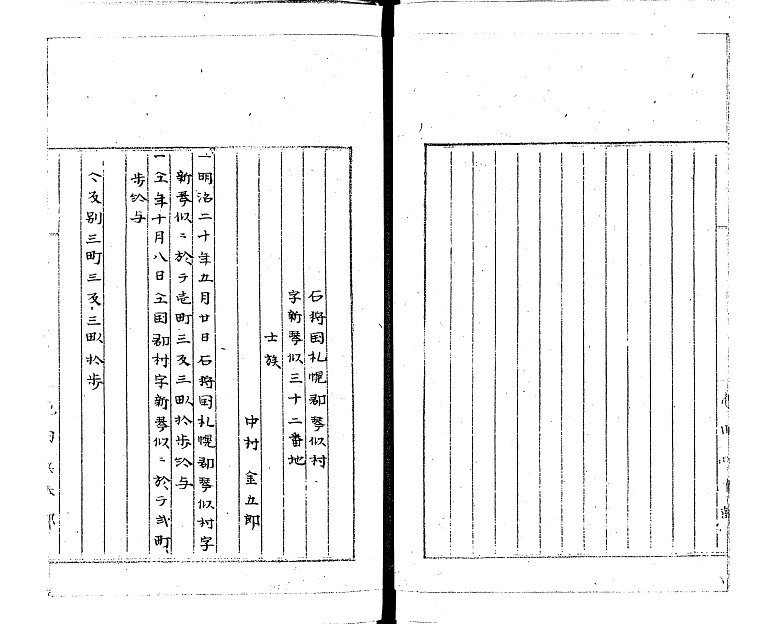 石狩国札幌郡琴似村
字新琴似三十二番地
士族
中村 金五郎
一明治二十年五月廿日石狩国札幌郡琴似村字
新琴似ニ於テ壱町三反三畝拾歩給与
一仝年十月八日仝国郡村字新琴似ニ於テ弐町
歩給与
合反別三町三反三畝拾歩